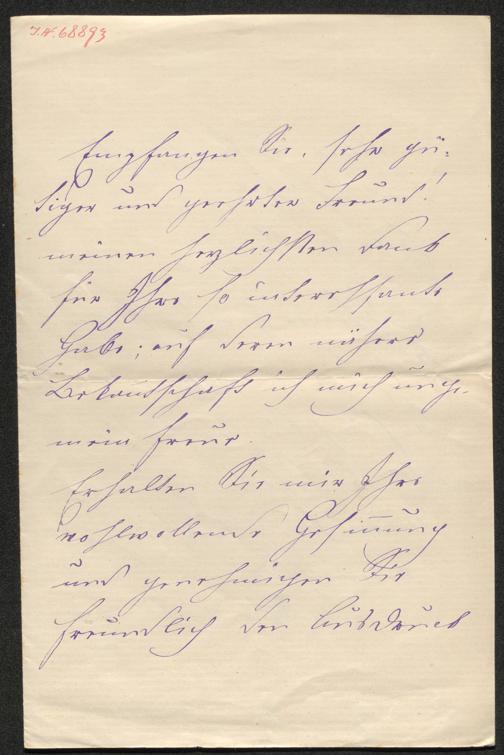 I.N. 68893
Empfangen Sie, sehr gü-
tiger und geehrter Freund!
meinen herzlichsten Dank
für Ihre so interessante
Gabe; auf deren nähere
Bekantschaft ich mich unge-
mein freue.
Erhalten Sie mir Ihre
wohlwollende Gesinnung
und genehmigen Sie
freundlich den Ausdruck